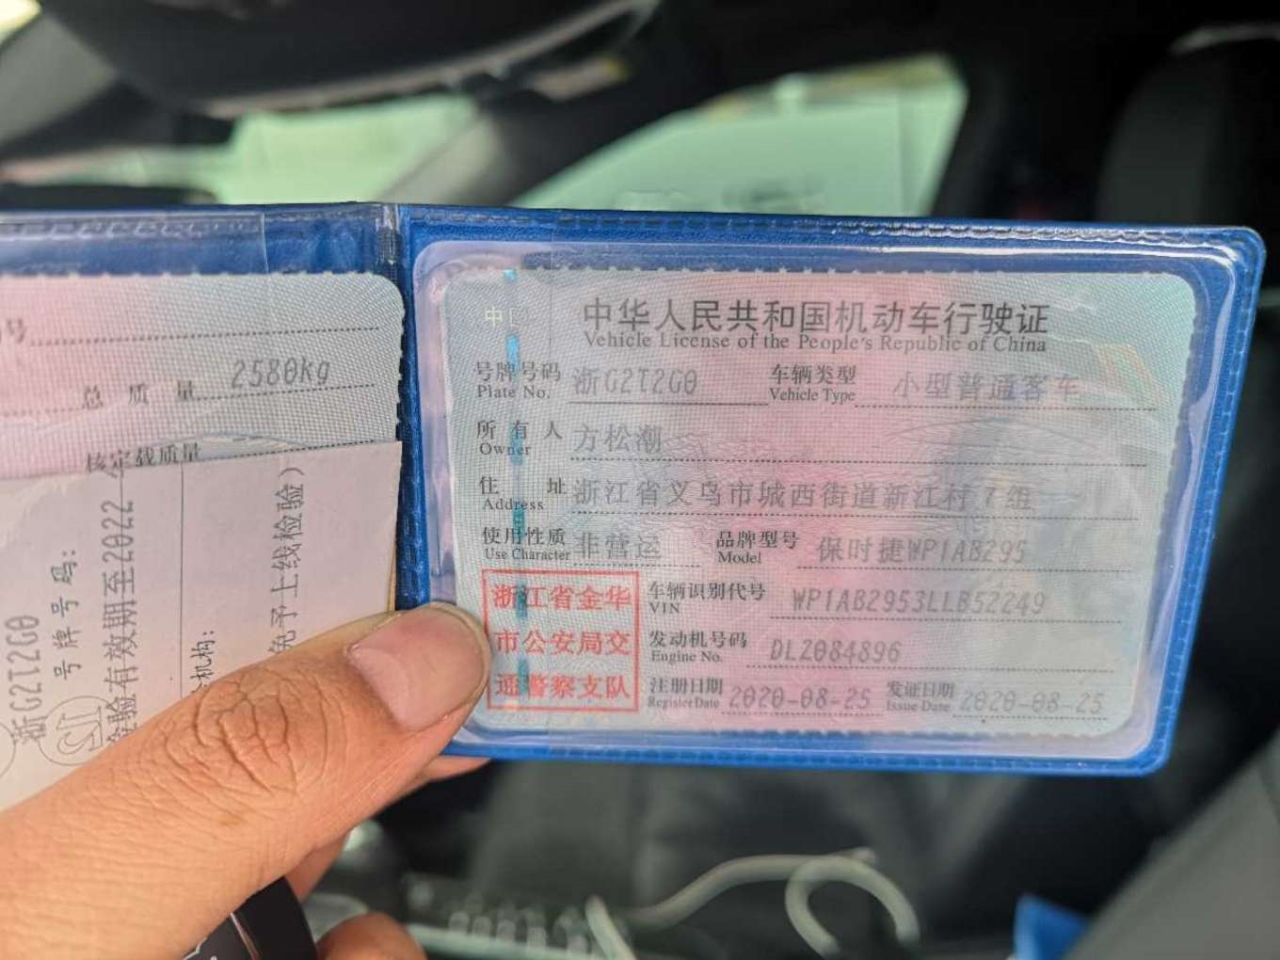 号
总 质 量 2580kg
核定载质量
浙G2T2G0
号牌号码:
检验有效期至2022
机构:
免予上线检验)
中
中华人民共和国机动车行驶证
Vehicle License of the People's Republic of China
号牌号码 浙G2T2G0 车辆类型 小型普通客车
Plate No. Vehicle Type
所 有 人 方松潮
Owner
住 址 浙江省义乌市城西街道新江村7组
Address
使用性质 非营运 品牌型号 保时捷WP1AB295
Use Character Model
浙江省金华
市公安局交
通警察支队
车辆识别代号 WP1AB2953LLB52249
VIN
发动机号码 DLZ084896
Engine No.
注册日期 2020-08-25 发证日期 2020-08-25
Register Date Issue Date